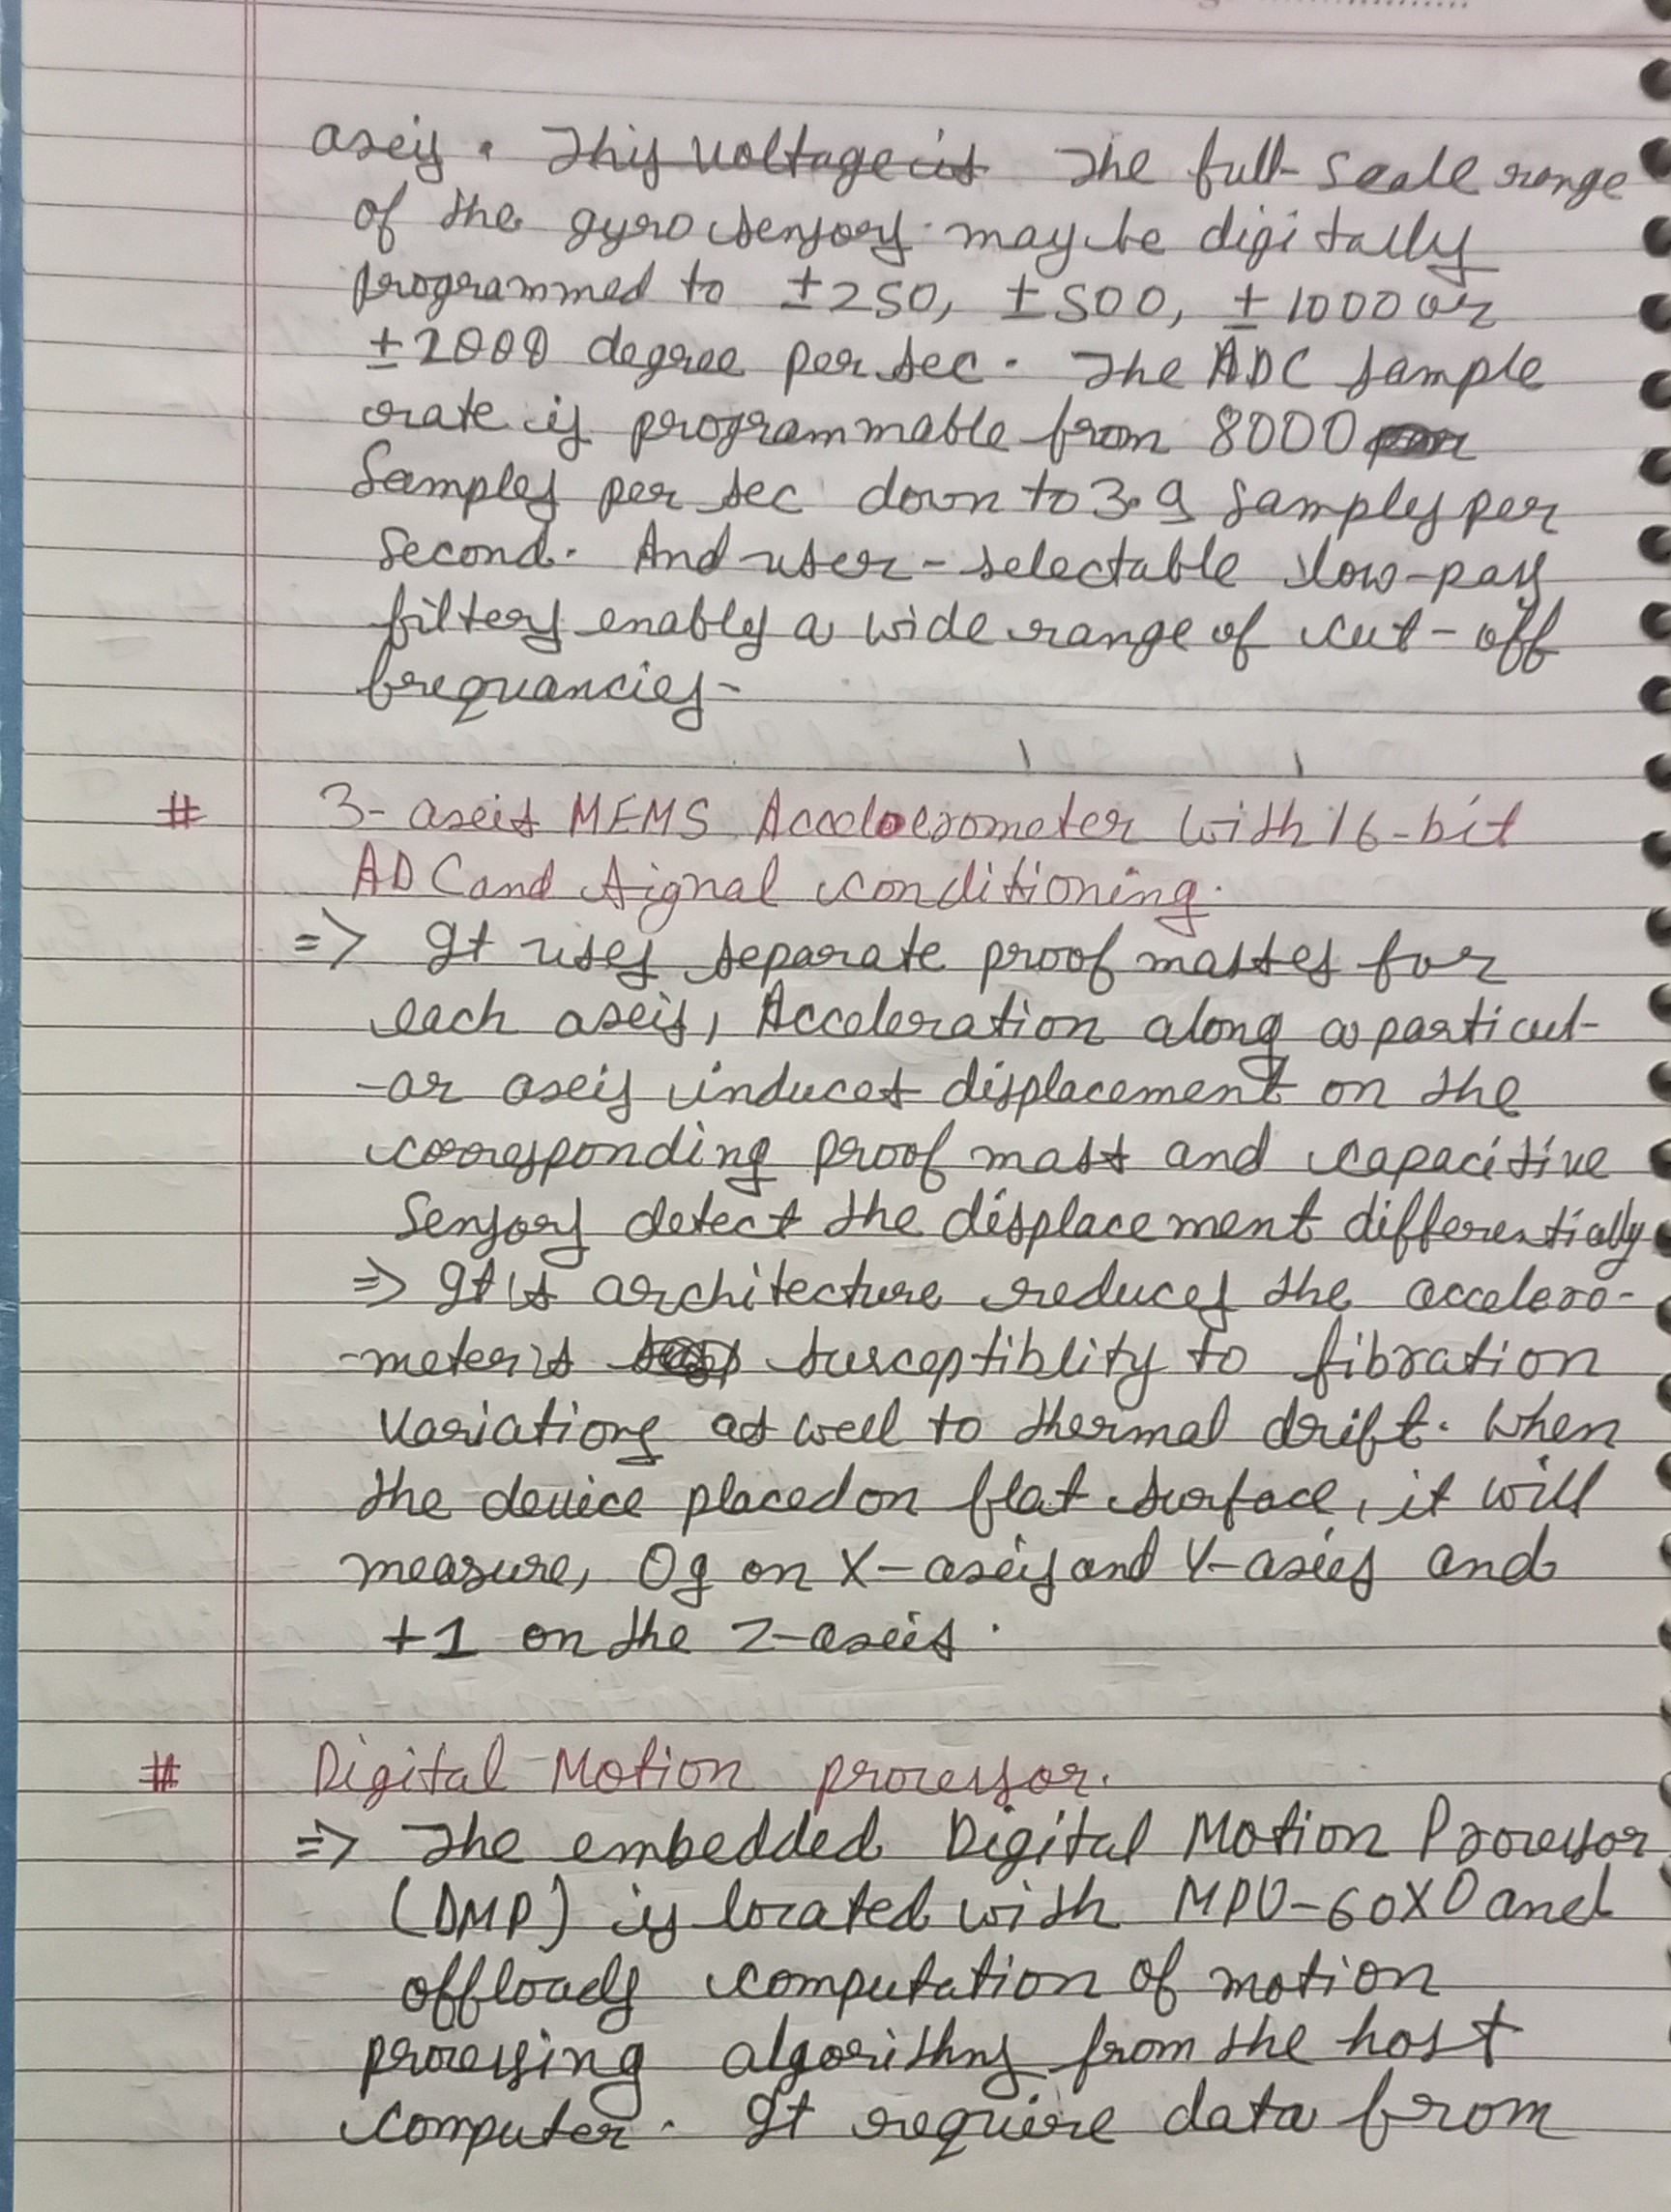 axis. This voltage is The full-scale range
of the gyro sensors may be digitally
programmed to ±250, ±500, ±1000 or
±2000 degree per sec. The ADC sample
rate is programmable from 8000
Samples per sec down to 3.9 samples per
second. And user-selectable low-pass
filters enables a wide range of cut-off
frequancies-
# 3-axis MEMS Accelerometer with 16-bit
ADC and signal conditioning.
=> It uses separate proof masses for
each axis, Acceleration along a particul-
-ar axis induces displacement on the
corresponding proof mass and capacitive
Sensors detect the displacement differentially
=> It's architecture reduces the accelero-
-meter's susceptiblity to fibration
variations as well to thermal drift. When
the device placed on flat surface, it will
measure, 0g on X-axis and Y-axis and
+1 on the Z-axis.
# Digital Motion processor.
=> The embedded Digital Motion Processor
(DMP) is located with MPU-60X0 and
offloads computation of motion
processing algorithms from the host
computer. It require data from